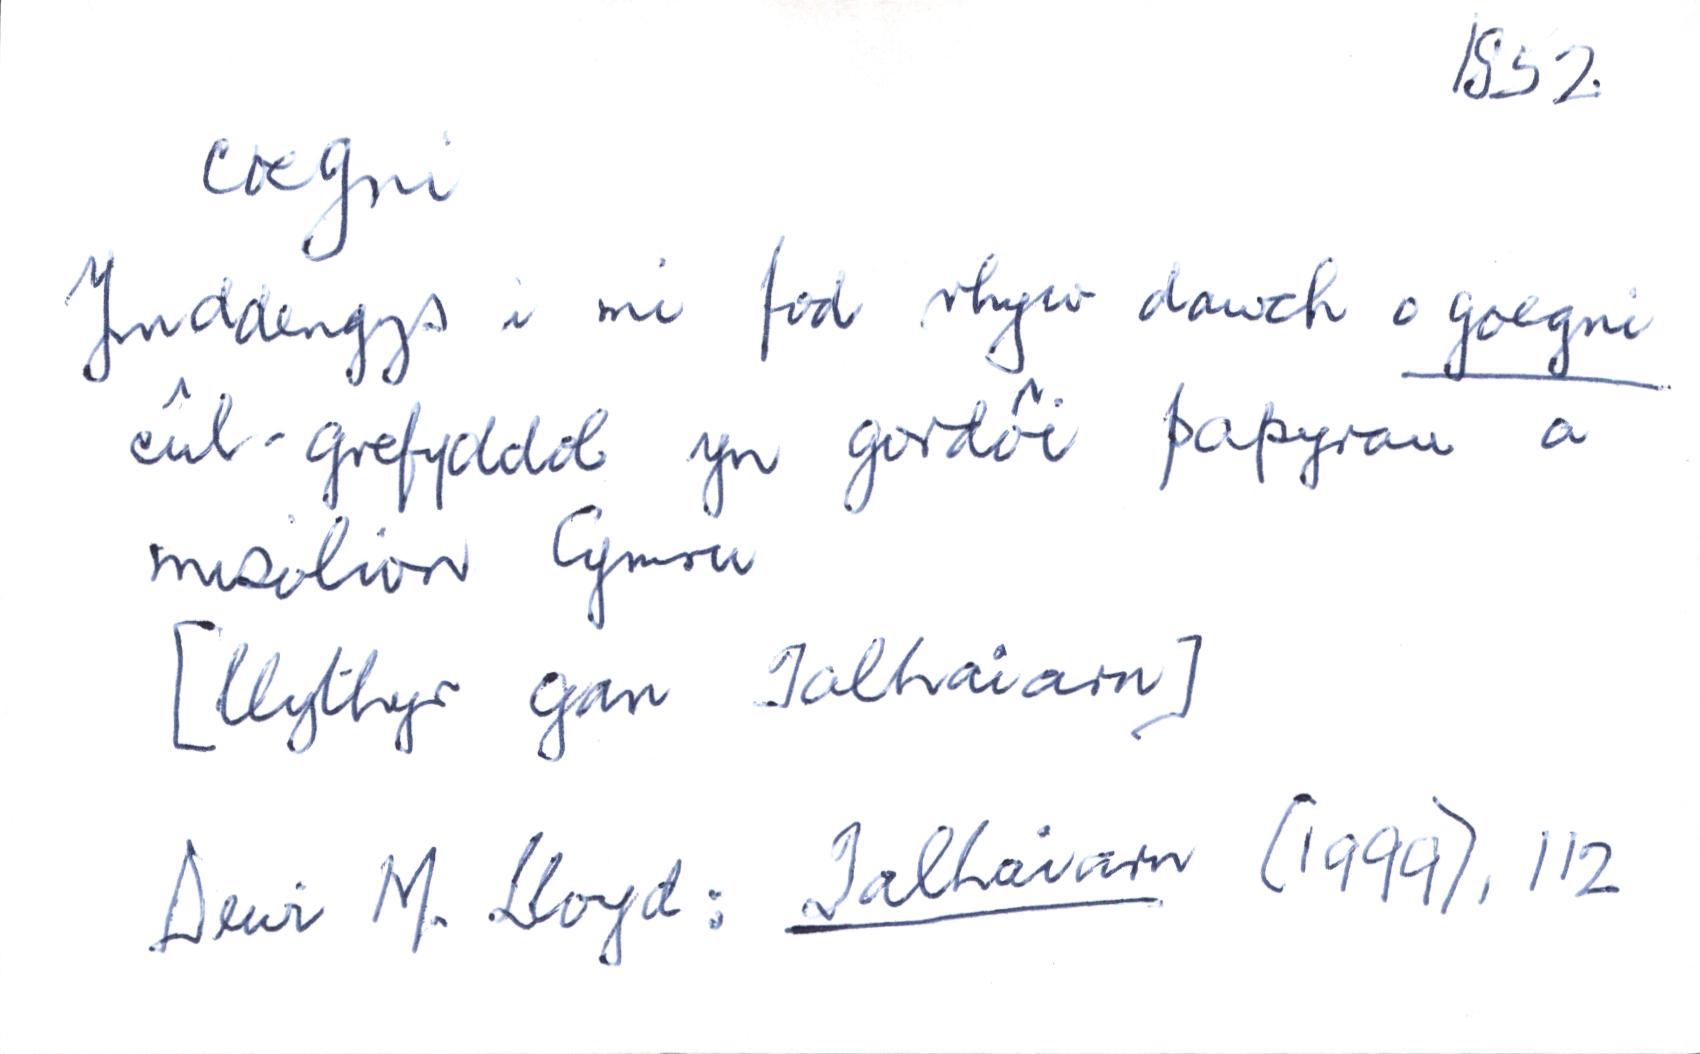 1852.
coegni
Ymddengys i mi fod rhyw dawch o goegni
cûl-grefyddol yn gordôi papyrau a
misolion Cymru
[llythyr gan Talhaiarn]
Dewi M. Lloyd: Talhaiarn (1999), 112